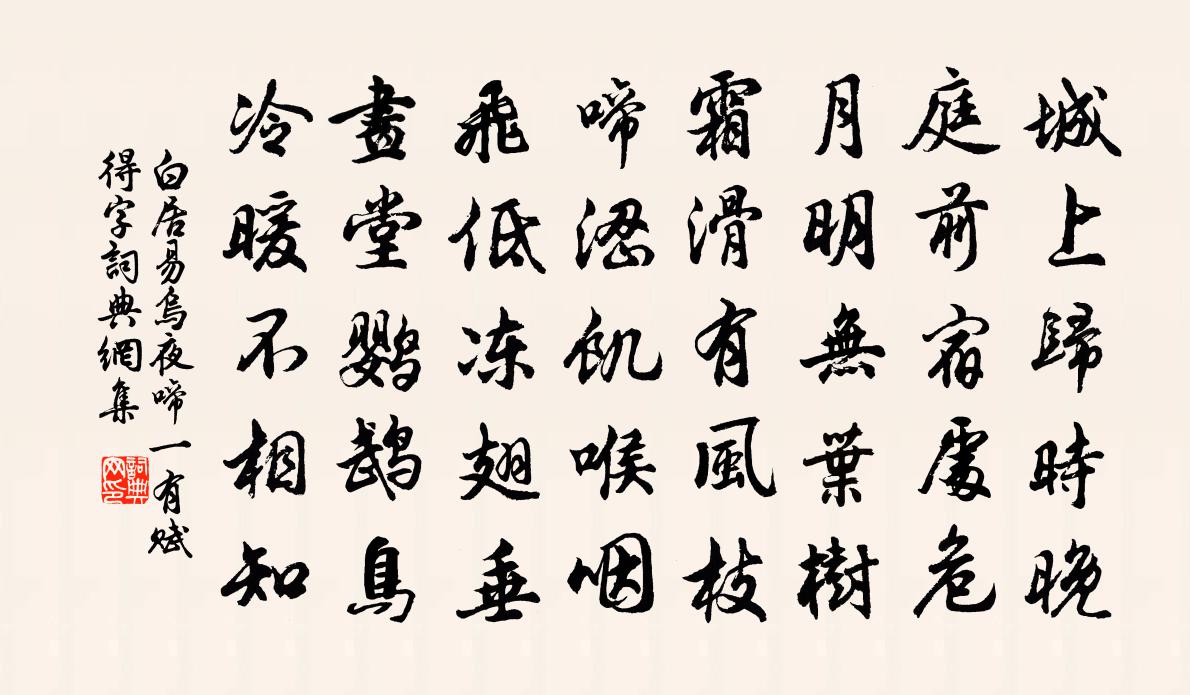 城上歸時晚
庭前宿處危
月明無葉樹
霜滑有風枝
啼涩飢喉咽
飛低冻翅垂
畫堂鹦鹉鳥
冷暖不相知
白居易烏夜啼一有賦
得字詞典網集
詞典网印